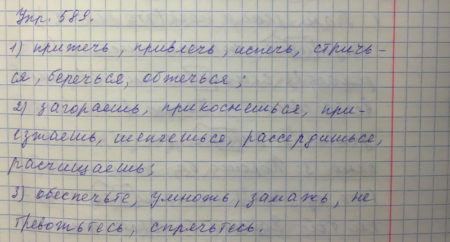 Упр. 589.
1) прижечь, привлечь, испечь, стричь-
ся, беречься, обжечься;
2) загораешь, прикоснёшься, при-
езжаешь, шепчешься, рассердишься,
расчищаешь;
3) обеспечьте, умножь, замажь, не
тревожьтесь, спрячьтесь.